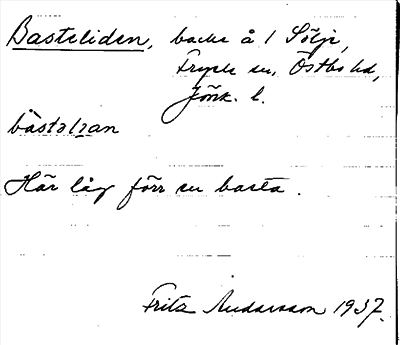 Basteliden, backe å 1 Sölje,
Fryele sn, Östbo hd,
Jönk. l.
bàstəl<u>i</u>an
Här låg förr en basta.
Fritz Andersson 1937.